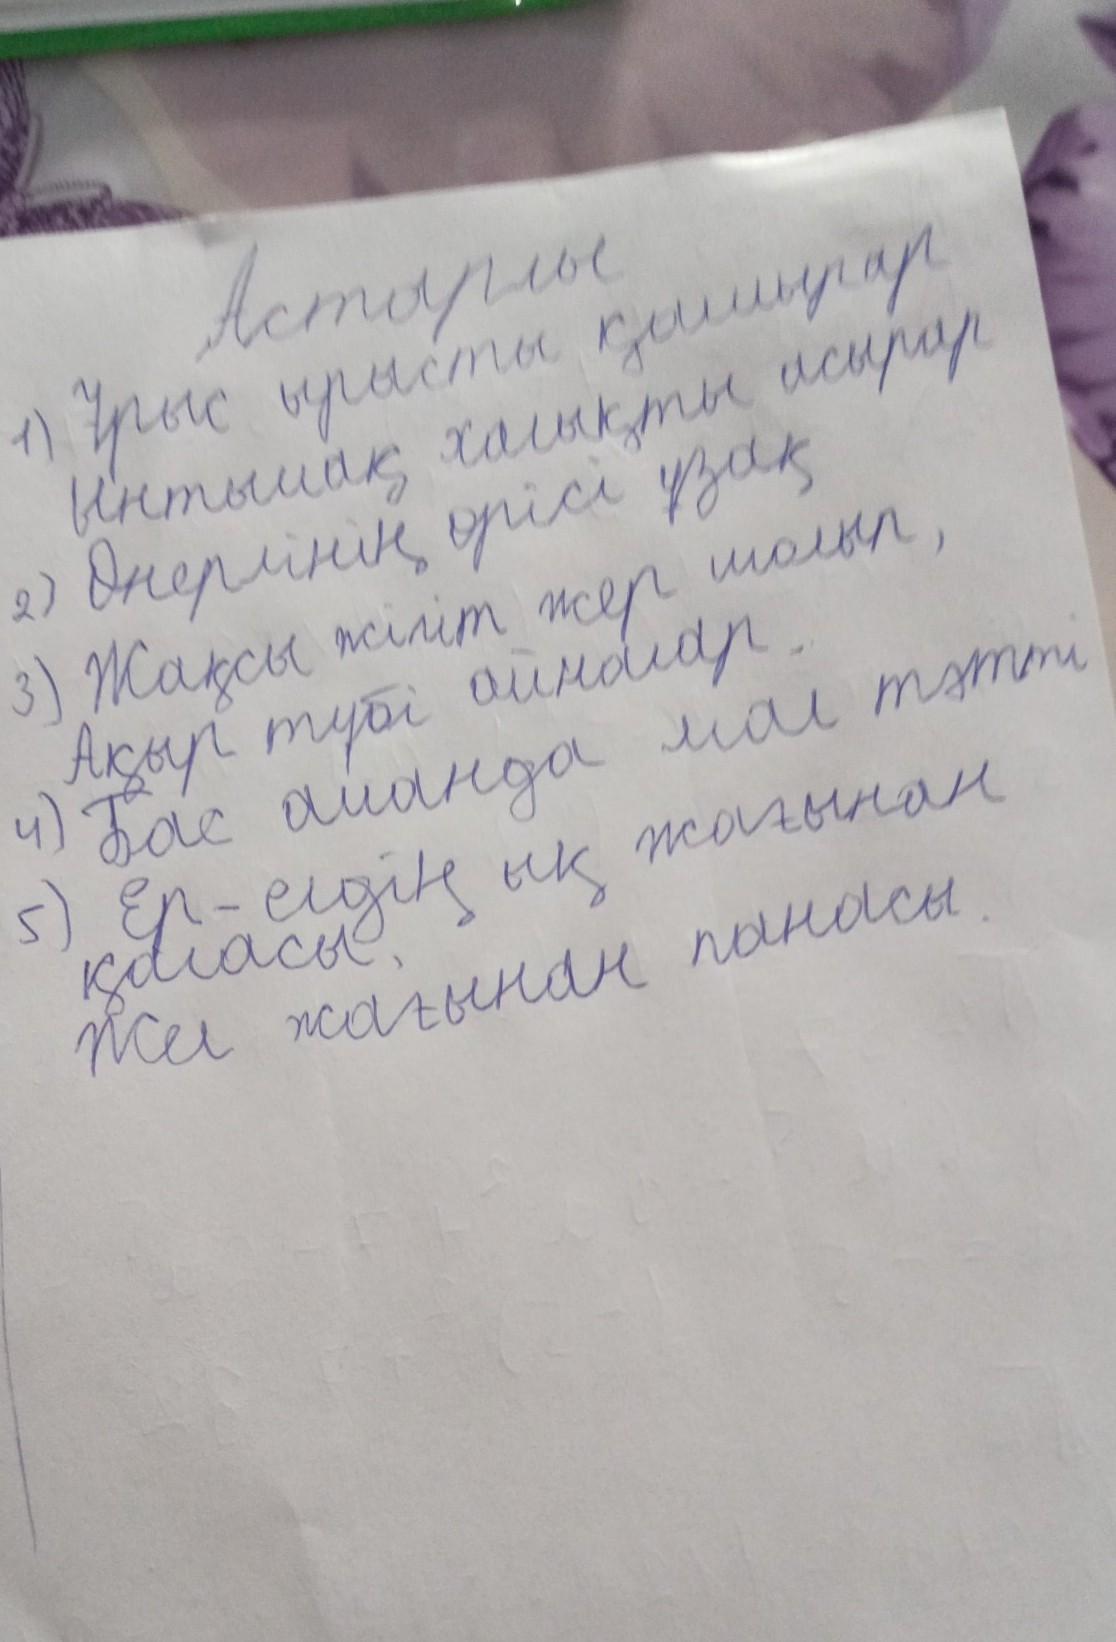 Астарлы
1) Ұрыс ырысты қашырар
Ынтымақ халықты асырар
2) Өнерлінің өрісі ұзақ
3) Жақсы жігіт жер шолып,
Ақыр түбі айналар.
4) Бас аманда мал тәтті
5) Ер-елдің ық жағынан
қаласы,
Жел жағынан панасы.